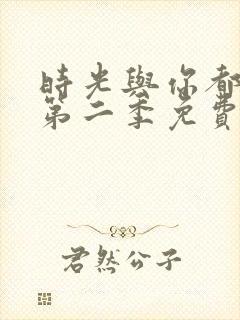 時光與你都
第二季免費
君然公子